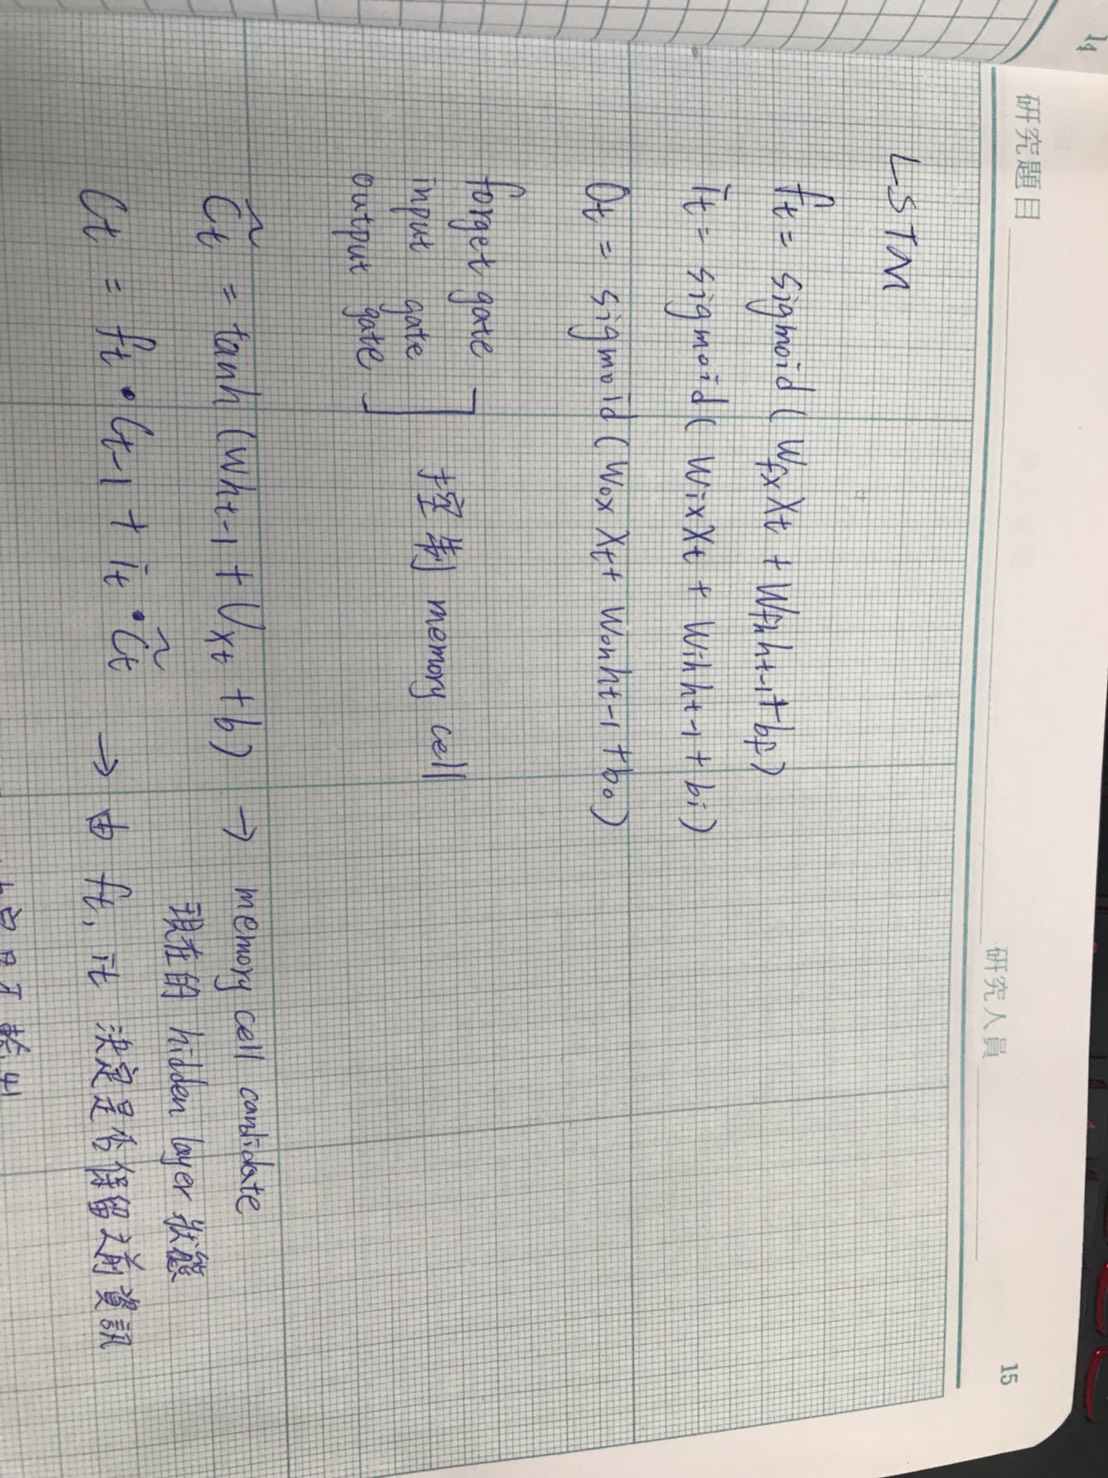 14
研究題目
研究人員
15
LSTM
ft = sigmoid ( Wfx Xt + Wfh ht-1 + bf )
it = sigmoid ( Wix Xt + Wih ht-1 + bi )
Ot = sigmoid ( Wox Xt + Woh ht-1 + bo )
forget gate
input gate
output gate
控制 memory cell
C̃t = tanh (Wht-1 + Uxt + b) → memory cell candidate
現在的 hidden layer 狀態
Ct = ft • Ct-1 + it • C̃t → 由 ft, it 決定是否保留之前資訊
輸出